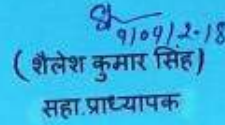 9/04/2018
(शैलेश कुमार सिंह)
सहा.प्राध्यापक